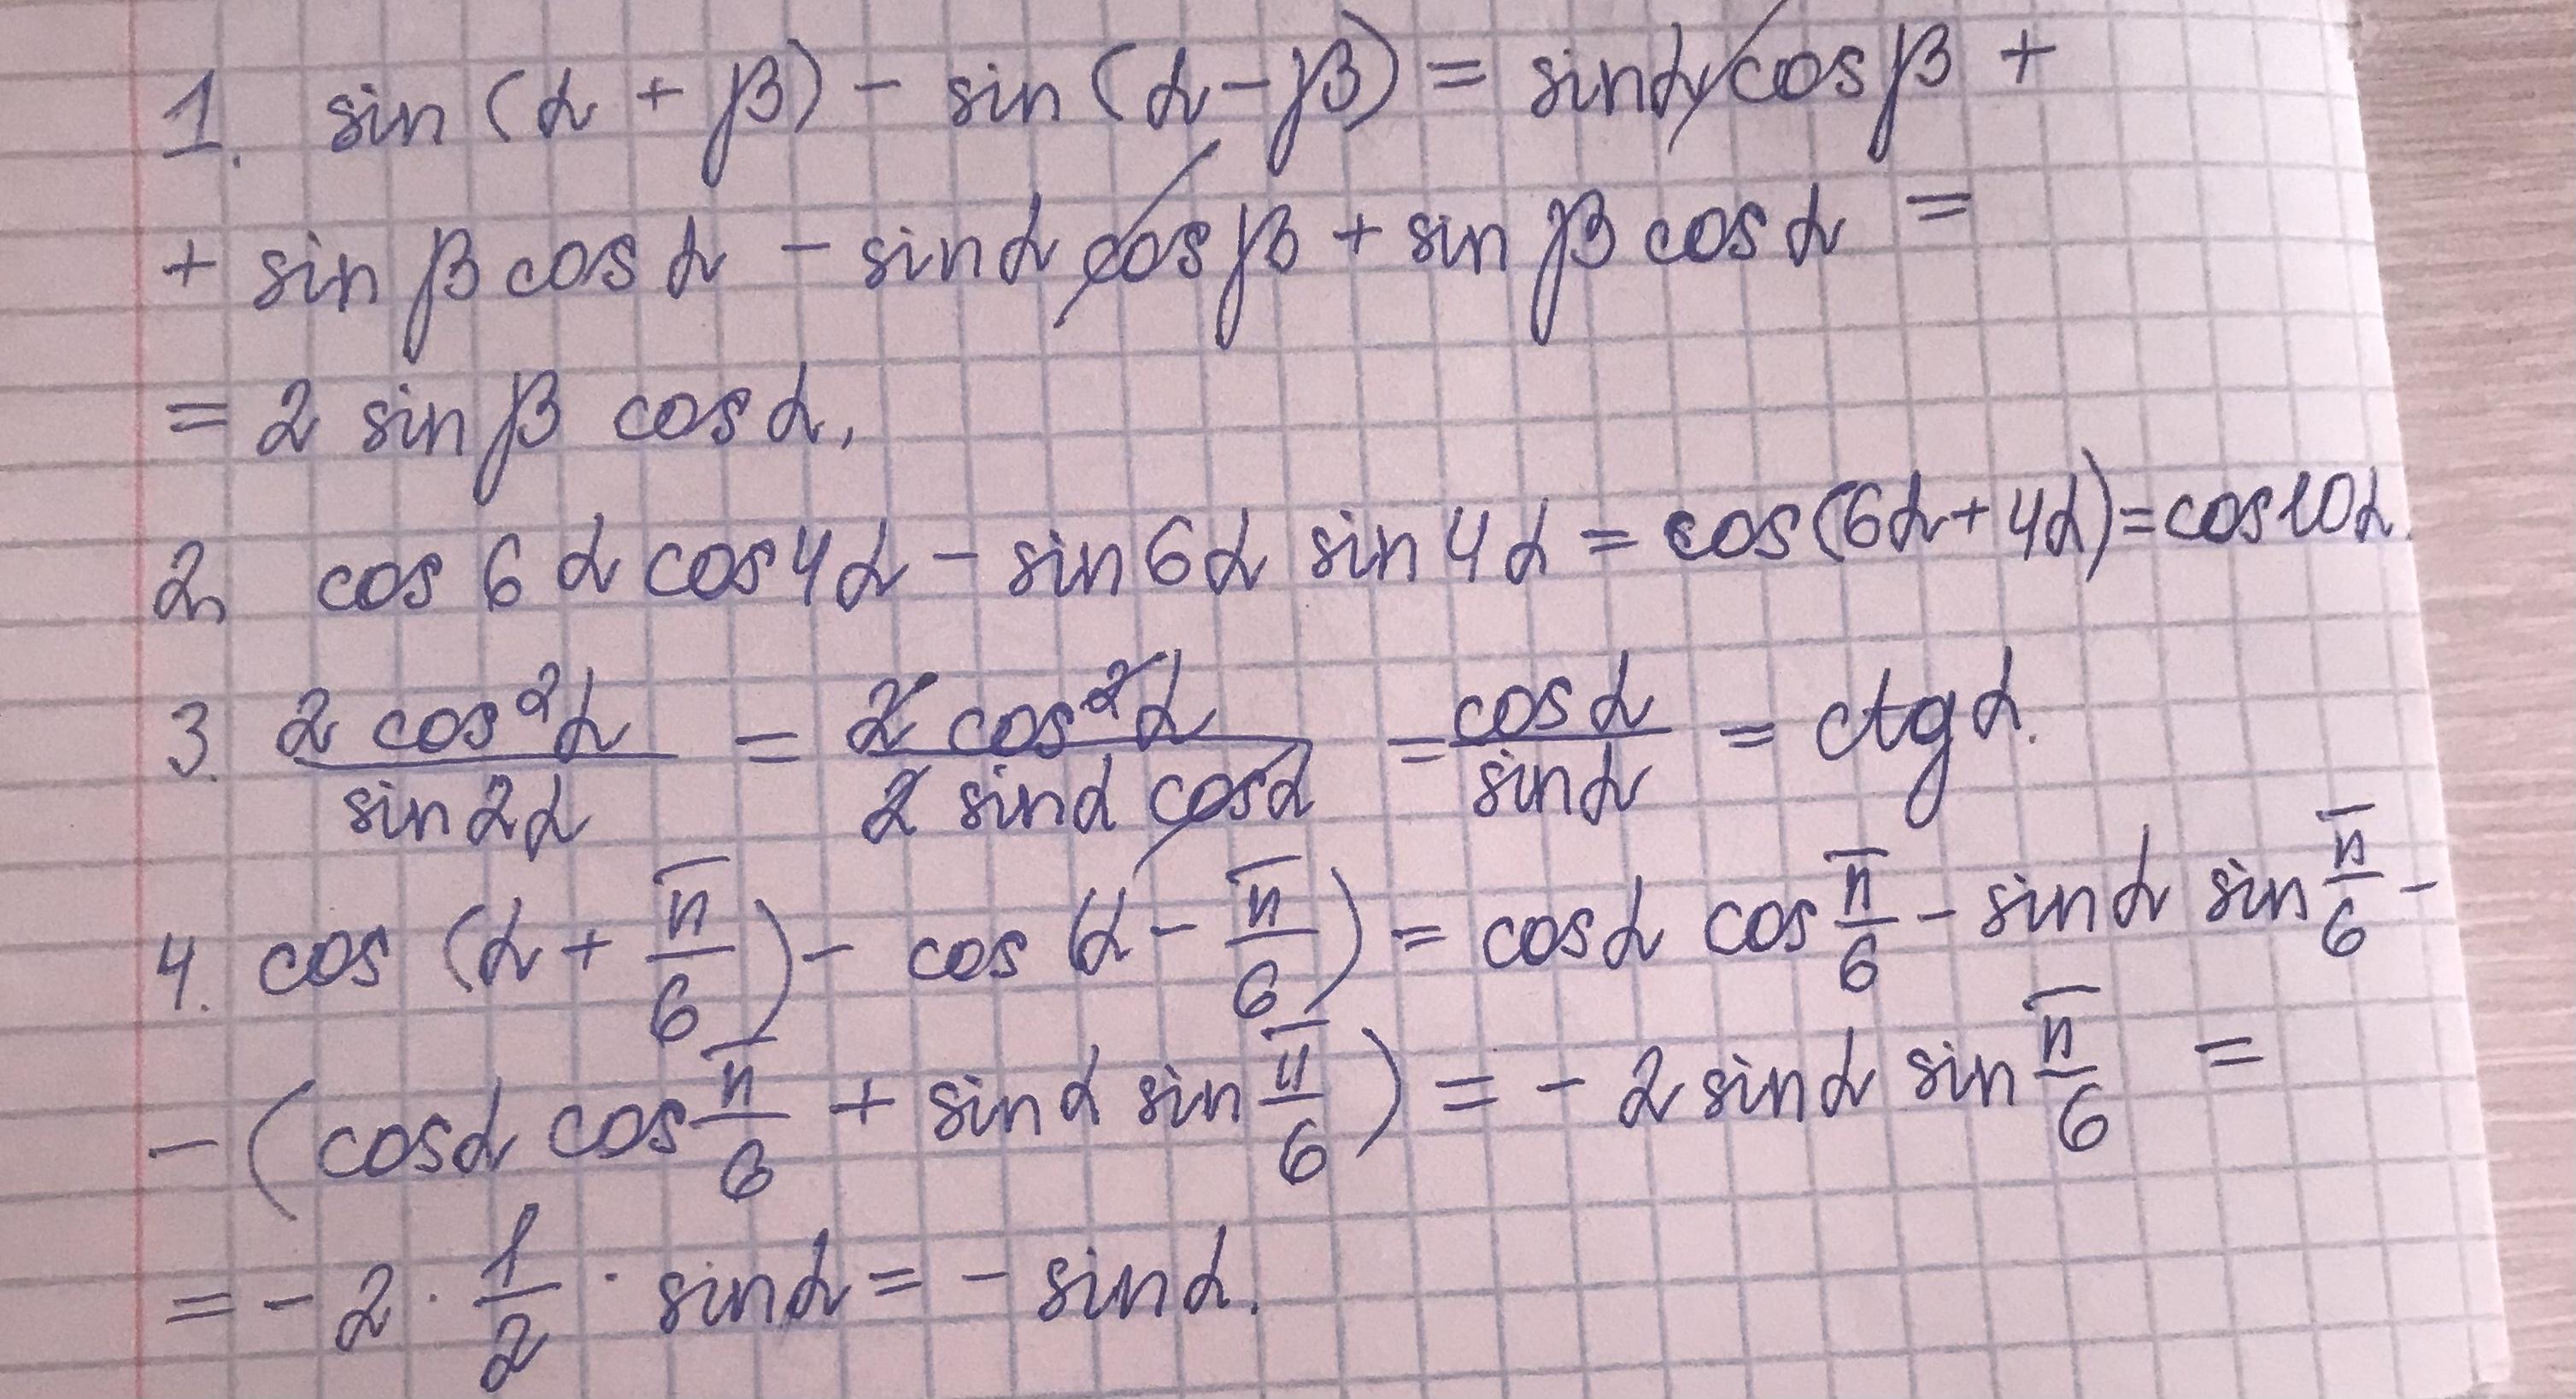 1. sin (α + β) - sin (α - β) = sinα cosβ +
+ sin β cos α - sinα cosβ + sin β cos α =
= 2 sin β cos α.
2. cos 6α cos 4α - sin 6α sin 4α = cos(6α + 4α) = cos10α.
3. 2 cos²α / sin 2α = 2 cos²α / 2 sinα cosα = cosα / sinα = ctg α.
4. cos (α + π/6) - cos (α - π/6) = cosα cos π/6 - sinα sin π/6 -
- (cosα cos π/6 + sinα sin π/6) = - 2 sinα sin π/6 =
= - 2 · 1/2 · sinα = - sinα.